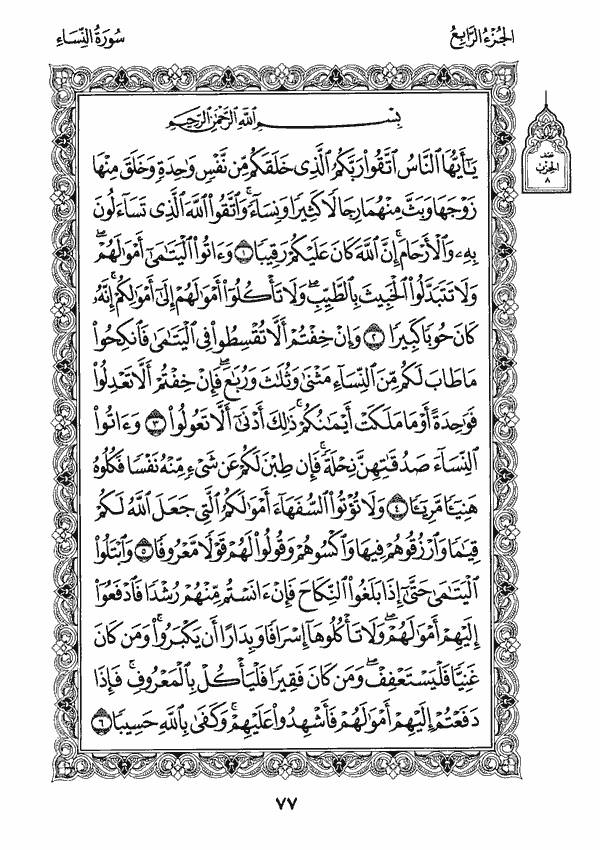 الجزء الرابع
سورة النساء
بِسْمِ اللَّهِ الرَّحْمَٰنِ الرَّحِيمِ
نصف
الحزب
٨
يَٰٓأَيُّهَا النَّاسُ اتَّقُوا۟ رَبَّكُمُ الَّذِى خَلَقَكُم مِّن نَّفْسٍ وَٰحِدَةٍ وَخَلَقَ مِنْهَا
زَوْجَهَا وَبَثَّ مِنْهُمَا رِجَالًا كَثِيرًا وَنِسَآءً ۚ وَاتَّقُوا۟ اللَّهَ الَّذِى تَسَآءَلُونَ
بِهِۦ وَالْأَرْحَامَ ۚ إِنَّ اللَّهَ كَانَ عَلَيْكُمْ رَقِيبًا ١ وَءَاتُوا۟ الْيَتَٰمَىٰٓ أَمْوَٰلَهُمْ ۖ
وَلَا تَتَبَدَّلُوا۟ الْخَبِيثَ بِالطَّيِّبِ ۖ وَلَا تَأْكُلُوٓا۟ أَمْوَٰلَهُمْ إِلَىٰٓ أَمْوَٰلِكُمْ ۚ إِنَّهُۥ
كَانَ حُوبًا كَبِيرًا ٢ وَإِنْ خِفْتُمْ أَلَّا تُقْسِطُوا۟ فِى الْيَتَٰمَىٰ فَانكِحُوا۟
مَا طَابَ لَكُم مِّنَ النِّسَآءِ مَثْنَىٰ وَثُلَٰثَ وَرُبَٰعَ ۖ فَإِنْ خِفْتُمْ أَلَّا تَعْدِلُوا۟
فَوَٰحِدَةً أَوْ مَا مَلَكَتْ أَيْمَٰنُكُمْ ۚ ذَٰلِكَ أَدْنَىٰٓ أَلَّا تَعُولُوا۟ ٣ وَءَاتُوا۟
النِّسَآءَ صَدُقَٰتِهِنَّ نِحْلَةً ۚ فَإِن طِبْنَ لَكُمْ عَن شَىْءٍ مِّنْهُ نَفْسًا فَكُلُوهُ
هَنِيٓـًٔا مَّرِيٓـًٔا ٤ وَلَا تُؤْتُوا۟ السُّفَهَآءَ أَمْوَٰلَكُمُ الَّتِى جَعَلَ اللَّهُ لَكُمْ
قِيَٰمًا وَارْزُقُوهُمْ فِيهَا وَاكْسُوهُمْ وَقُولُوا۟ لَهُمْ قَوْلًا مَّعْرُوفًا ٥ وَابْتَلُوا۟
الْيَتَٰمَىٰ حَتَّىٰٓ إِذَا بَلَغُوا۟ النِّكَاحَ فَإِنْ ءَانَسْتُم مِّنْهُمْ رُشْدًا فَادْفَعُوٓا۟
إِلَيْهِمْ أَمْوَٰلَهُمْ ۖ وَلَا تَأْكُلُوهَآ إِسْرَافًا وَبِدَارًا أَن يَكْبَرُوا۟ ۚ وَمَن كَانَ
غَنِيًّا فَلْيَسْتَعْفِفْ ۖ وَمَن كَانَ فَقِيرًا فَلْيَأْكُلْ بِالْمَعْرُوفِ ۚ فَإِذَا
دَفَعْتُمْ إِلَيْهِمْ أَمْوَٰلَهُمْ فَأَشْهِدُوا۟ عَلَيْهِمْ ۚ وَكَفَىٰ بِاللَّهِ حَسِيبًا ٦
٧٧